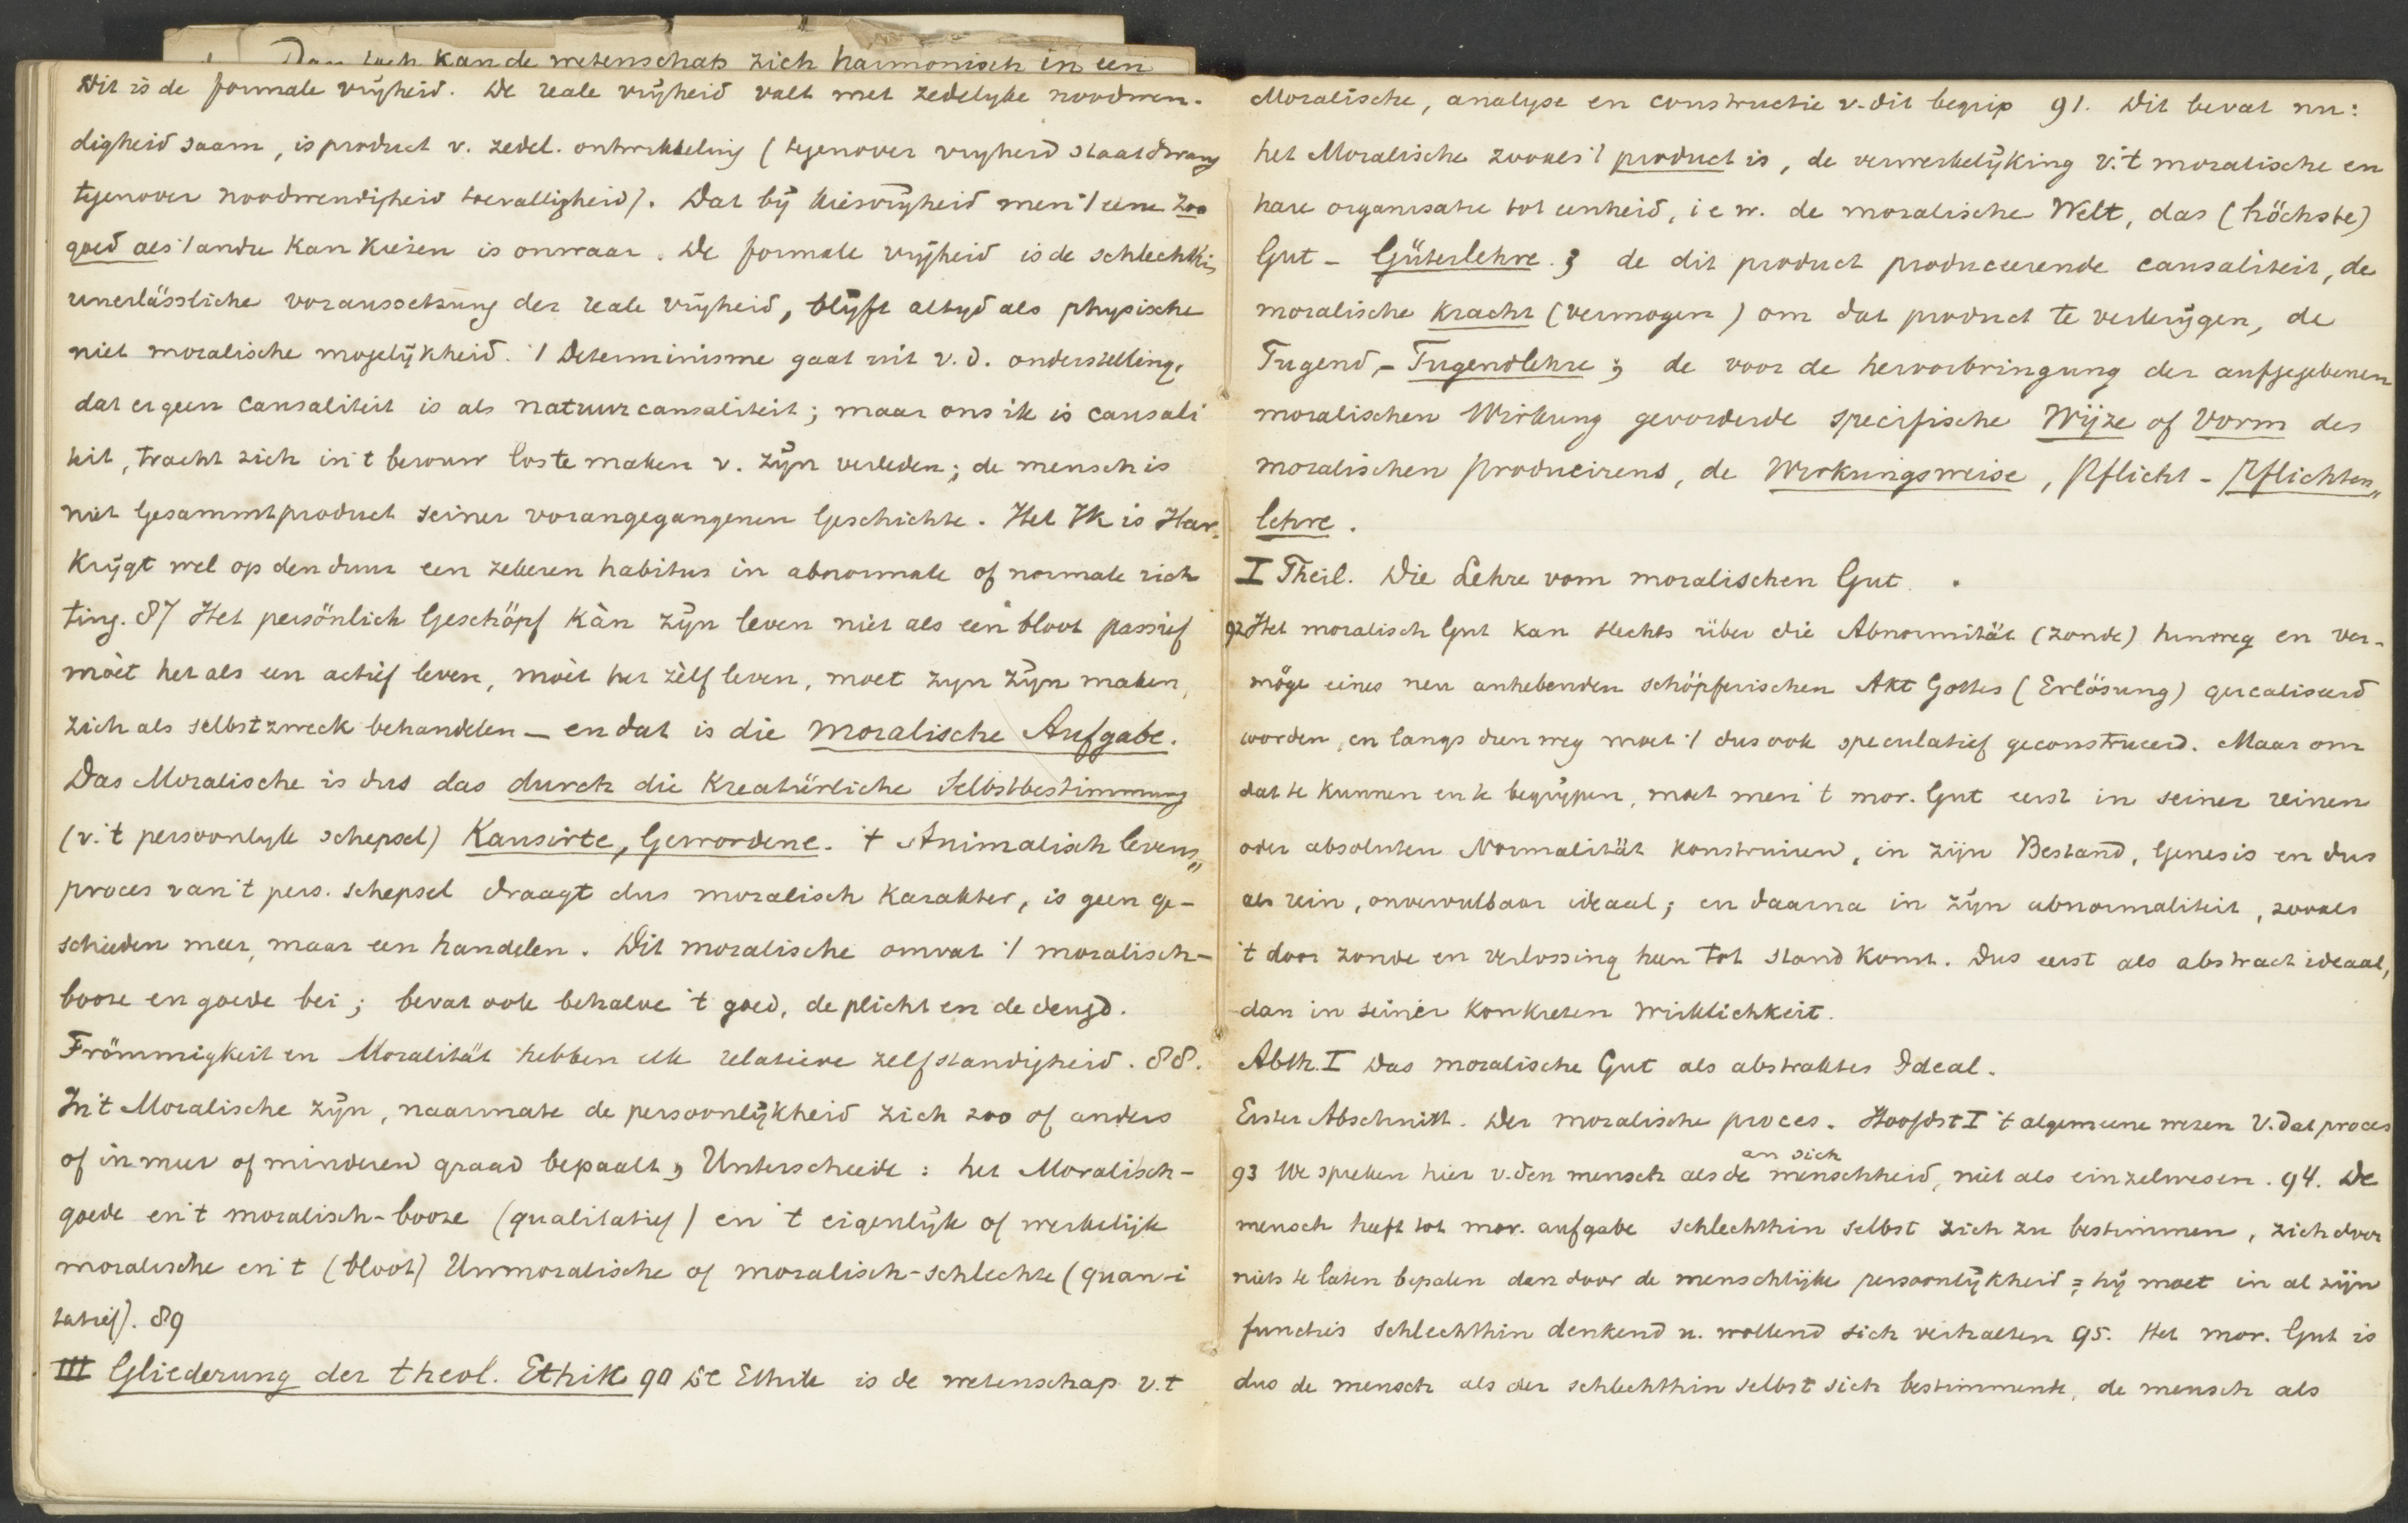 Dan toch kan de wetenschap zich harmonisch in een
Dit is de formale vrijheid. De reale vrijheid valt met zedelijke noodwen-
digheid saam, is product v. zedel. ontwikkeling (tegenover vrijheid staat dwang
tegenover noodwendigheid toevalligheid). Dat bij kiesvrijheid men 't eene zoo
goed als 't andre kan kiezen is onwaar. De formale vrijheid is de schlechthin
unerlässliche voraussetzung der reale vrijheid, blijft altyd als physische
niet moralische mogelijkheid. 't Determinisme gaat uit v.d. onderstelling,
dat er geen causaliteit is als natuurcausaliteit; maar ons ik is causali
teit, tracht zich in 't berouw los te maken v. zijn verleden; de mensch is
niet Gesammtproduct seiner vorangegangenen Geschichte. Het Ik is Herr.
Krijgt wel op den duur een zekeren habitus in abnormale of normale rich
ting. 87 Het persönlich Geschöpf kàn zijn leven niet als een bloot passief
mòet het als een actief leven, mòet het zèlf leven, moet zyn zijn maken,
zich als selbstzweck behandelen — en dat is die moralische Aufgabe.
Das Moralische is dus das durch die Kreatürliche Selbstbestimmung
(v. 't persoonlyk schepsel) Kausirte, Gewordene. 't Animalisch levens„
proces van 't pers. schepsel draagt dus moralisch karakter, is geen ge-
schieden meer, maar een handelen. Dit moralische omvat 't moralisch-
booze en goede bei; bevat ook behalve 't goed, de plicht en de deugd.
Frömmigkeit en Moralität hebben elk relatieve zelfstandigheid. 88.
In 't Moralische zijn, naarmate de persoonlijkheid zich zoo of anders
of in meer of minderen graad bepaalt, Unterschiede: het Moralisch-
goede en 't moralisch-booze (qualitatief) en 't eigenlijk of werkelijk
moralische en 't (bloot) Unmoralische of moralisch-schlechte (quan-i
tatief). 89
III Gliederung der theol. Ethik 90 De Ethik is de wetenschap v. t
Moralische, analyse en constructie v. dit begrip 91. Dit bevat nu:
het Moralische zooals 't product is, de verwerkelijking v. 't moralische en
hare organisatie tot eenheid, i e w. de moralische Welt, das (höchste)
Gut - Güterlehre.; de dit product produceerende causaliteit, de
moralische Kracht (vermogen) om dat product te verkrijgen, de
Tugend, - Tugendlehre; de voor de hervorbringung der aufgegebenen
moralischen Wirkung gevorderde specifische Wijze of Vorm des
moralischen producirens, de Wirkungsweise, Pflicht - Pflichten„
lehre.
I Theil. Die Lehre vom moralischen Gut.
92 Het moralisch Gut kan slechts über die Abnormität (zonde) hinweg en ver-
möge eines neu anhebenden schöpferischen Akt Gottes (Erlösung) gerealiseerd
worden, en langs dien weg moet 't dus ook speculatief geconstrueerd. Maar om
dat te kunnen en te begrijpen, moet men 't mor. Gut eerst in seiner reinen
oder absoluten Normalität konstruiren, in zijn Bestand, Genesis en dus
als rein, onvervulbaar ideaal; en daarna in zijn abnormaliteit, zooals
't door zonde en verlossing heen tot stand komt. Dus eerst als abstract ideaal,
dan in seiner konkreten Wirklichkeit.
Abth. I Das moralische Gut als abstraktes Ideal.
Erster Abschnitt. Der moralische proces. Hoofdst I 't algemeene wezen v. dat proces
an sich
93 We spreken hier v. den mensch als de menschheid, niet als einzelwesen. 94. De
mensch heeft tot mor. aufgabe schlechthin selbst zich zu bestimmen, zich door
niets te laten bepalen dan door de menschlijke persoonlijkheid; hij moet in al zijn
functies schlechthin denkend u. wollend sich verhalten 95. Het mor. Gut is
dus de mensch als der schlechthin selbst sich bestimmende, de mensch als